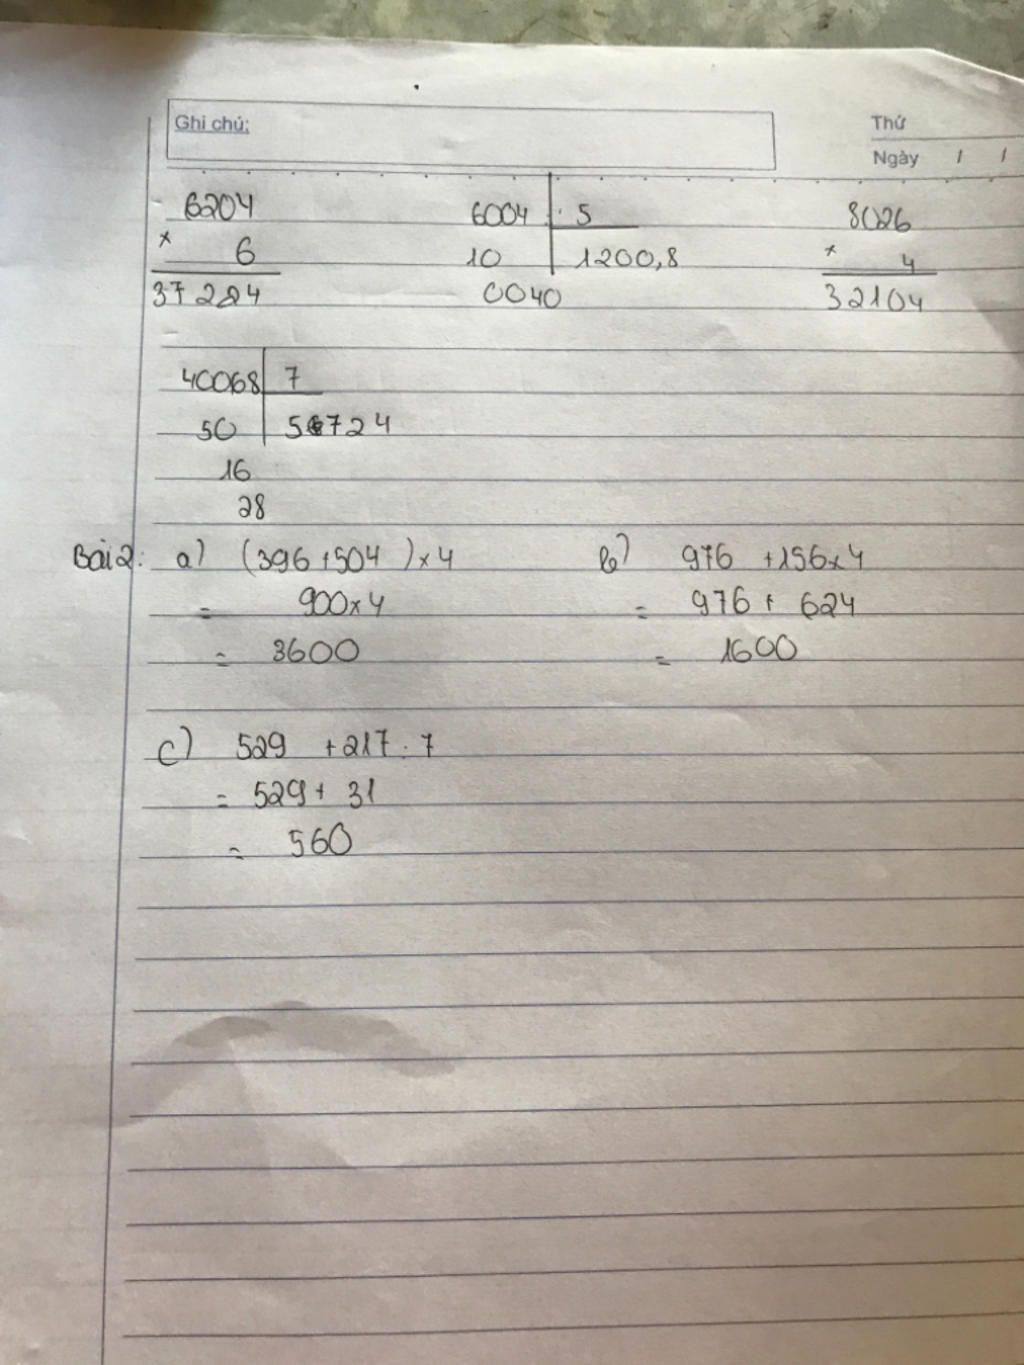 Ghi chú:
Thứ
Ngày / /
6204 6004 5 8026
× 6 10 1200,8 × 4
37224 0040 32104
40068 7
50 5724
16
28
Bài 2: a) (396 + 504) × 4 b) 976 + 156 × 4
= 900 × 4 = 976 + 624
= 3600 = 1600
c) 529 + 217 . 7
= 529 + 31
= 560